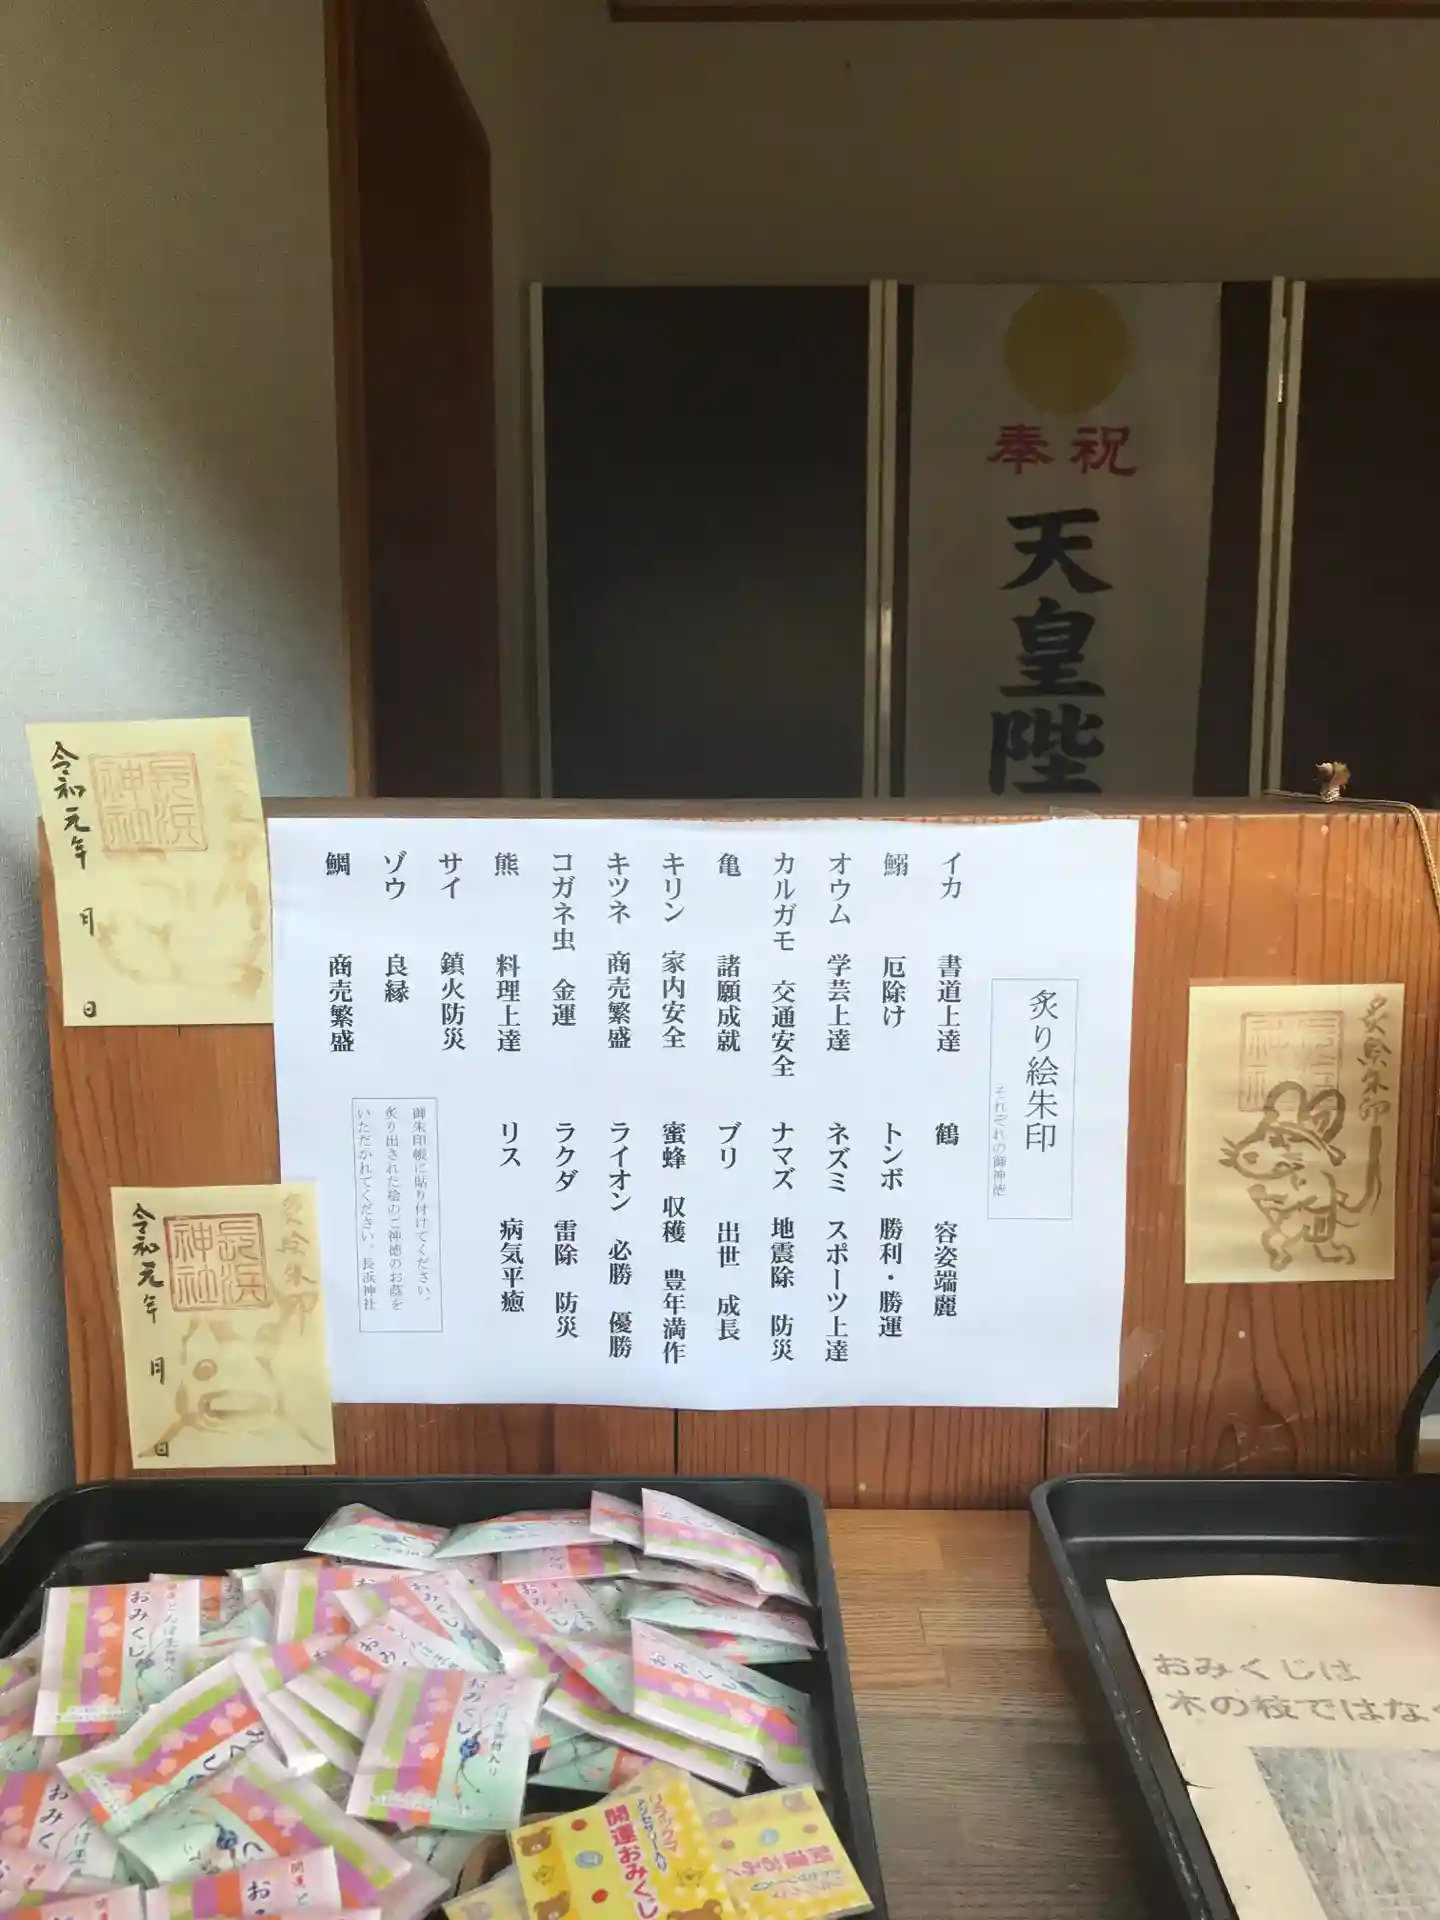 奉祝
天皇陛
炙り絵朱印
それぞれの御神徳
イカ 書道上達
鰯 厄除け
オウム 学芸上達
カルガモ 交通安全
亀 諸願成就
キリン 家内安全
キツネ 商売繁盛
コガネ虫 金運
熊 料理上達
サイ 鎮火防災
ゾウ 良縁
鯛 商売繁盛
鶴 容姿端麗
トンボ 勝利・勝運
ネズミ スポーツ上達
ナマズ 地震除 防災
ブリ 出世 成長
蜜蜂 収穫 豊年満作
ライオン 必勝 優勝
ラクダ 雷除 防災
リス 病気平癒
御朱印帳に貼り付けてください。
炙り出された絵のご神徳のお蔭を
いただかれてください。長浜神社
炙り絵朱印
長浜神社
令和元年 月 日
長浜神社
炙り絵朱印
長浜神社
令和元年 月 日
おみくじ
おみくじ
おみくじ
おみくじ
リラックマ
開運おみくじ
おみくじは
木の枝ではなく